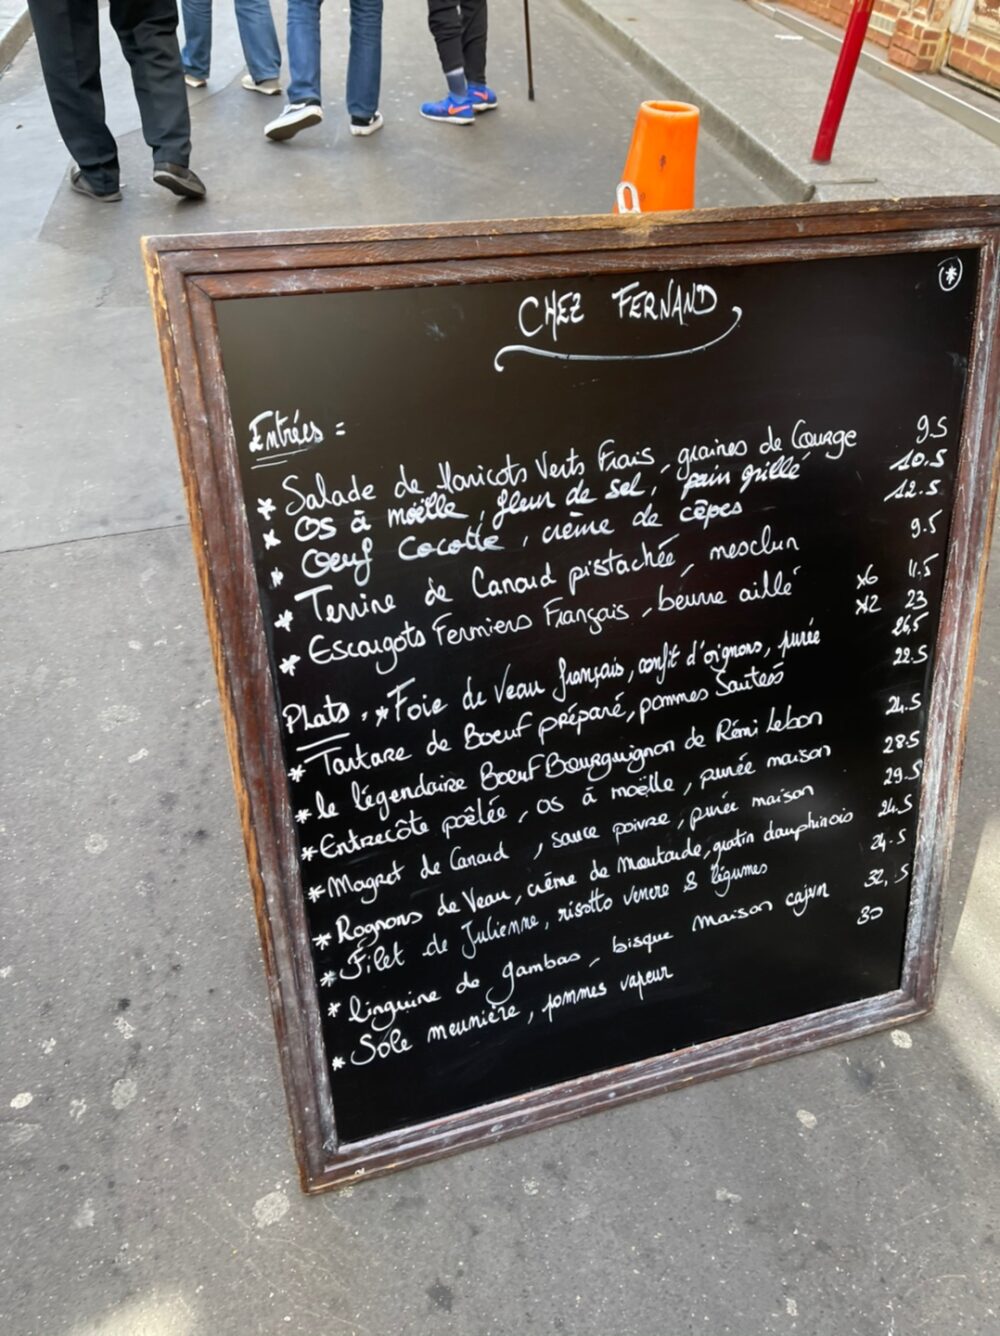 CHEZ FERNAND
Entrées :
* Salade de Haricots Verts Frais, graines de Courge 9.5
* OS à moëlle, fleur de sel, pain grillé 10.5
* Oeuf Cocotte, crème de cèpes 12.5
* Terrine de Canard pistachée, mesclun 9.5
* Escargots Fermiers Français, beurre aillé x6 11.5
x12 23
Plats : * Foie de Veau français, confit d'oignons, purée 26,5
* Tartare de Boeuf préparé, pommes Sautées 22.5
* le légendaire Boeuf Bourguignon de Rémi Lebon 24.5
* Entrecôte poêlée, os à moëlle, purée maison 28.5
* Magret de Canard, sauce poivre, purée maison 29.5
* Rognons de Veau, crème de moutarde, gratin dauphinois 24.5
* Filet de Julienne, risotto venere & légumes 24.5
* linguine de gambas, bisque maison cajun 32,5
* Sole meunière, pommes vapeur 30